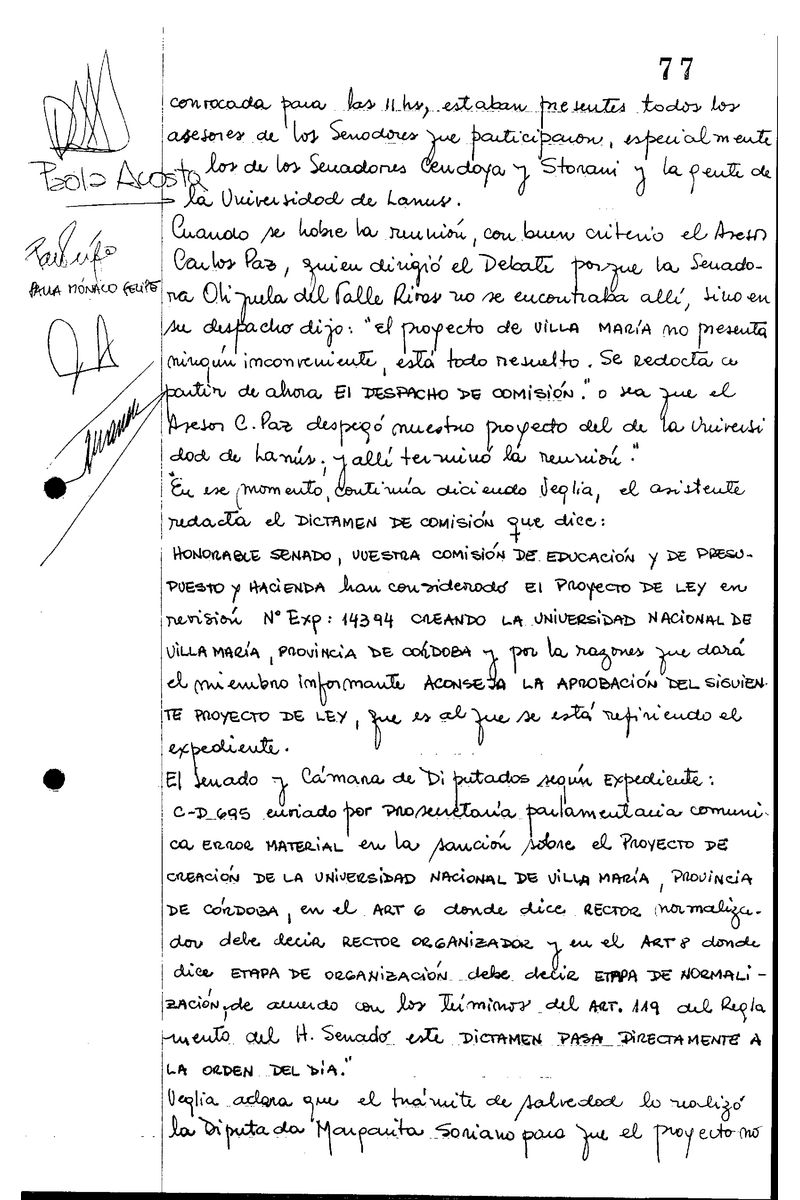 77
convocada para las 11 hs, estaban presentes todos los
asesores de los Senadores que participaron, especialmente
Paola Acosta
los de los Senadores Cendoya y Storani y la gente de
la Universidad de Lanus.
Cuando se habre la reunión, con buen criterio el Asesor
Carlos Paz, quien dirigió el Debate porque la Senado-
PAULA MÓNACO FELIPE
ra Olijuela del Valle Rivas no se encontraba allí, sino en
su despacho dijo: "el proyecto de VILLA MARÍA no presenta
ningún inconveniente, está todo resuelto. Se redacta a
partir de ahora El DESPACHO DE COMISIÓN." o sea que el
Asesor C. Paz despegó nuestro proyecto del de la Universi
dad de Lanús; y allí terminó la reunión."
"En ese momento, continúa diciendo Veglia, el asistente
redacta el DICTAMEN DE COMISIÓN que dice:
HONORABLE SENADO, VUESTRA COMISIÓN DE EDUCACIÓN Y DE PRESU-
PUESTO Y HACIENDA han considerado El PROYECTO DE LEY en
revisión N° Exp: 14394 CREANDO LA UNIVERSIDAD NACIONAL DE
VILLA MARÍA, PROVINCIA DE CÓRDOBA y por la razones que dará
el miembro informante ACONSEJA LA APROBACIÓN DEL SIGUIEN-
TE PROYECTO DE LEY, que es al que se está refiriendo el
expediente.
El Senado y Cámara de Diputados según Expediente:
C-D 695 enviado por Prosecretaría parlamentaria comuni-
ca ERROR MATERIAL en la sanción sobre el PROYECTO DE
CREACIÓN DE LA UNIVERSIDAD NACIONAL DE VILLA MARÍA, PROVINCIA
DE CÓRDOBA, en el ART 6 donde dice RECTOR normaliza-
dor debe decir RECTOR ORGANIZADOR y en el ART 8 donde
dice ETAPA DE ORGANIZACIÓN debe decir ETAPA DE NORMALI-
ZACIÓN, de acuerdo con los términos del ART. 119 del Regla
mento del H. Senado este DICTAMEN PASA DIRECTAMENTE A
LA ORDEN DEL DÍA."
Veglia aclara que el trámite de salvedad lo realizó
la Diputada Margarita Soriano para que el proyecto no